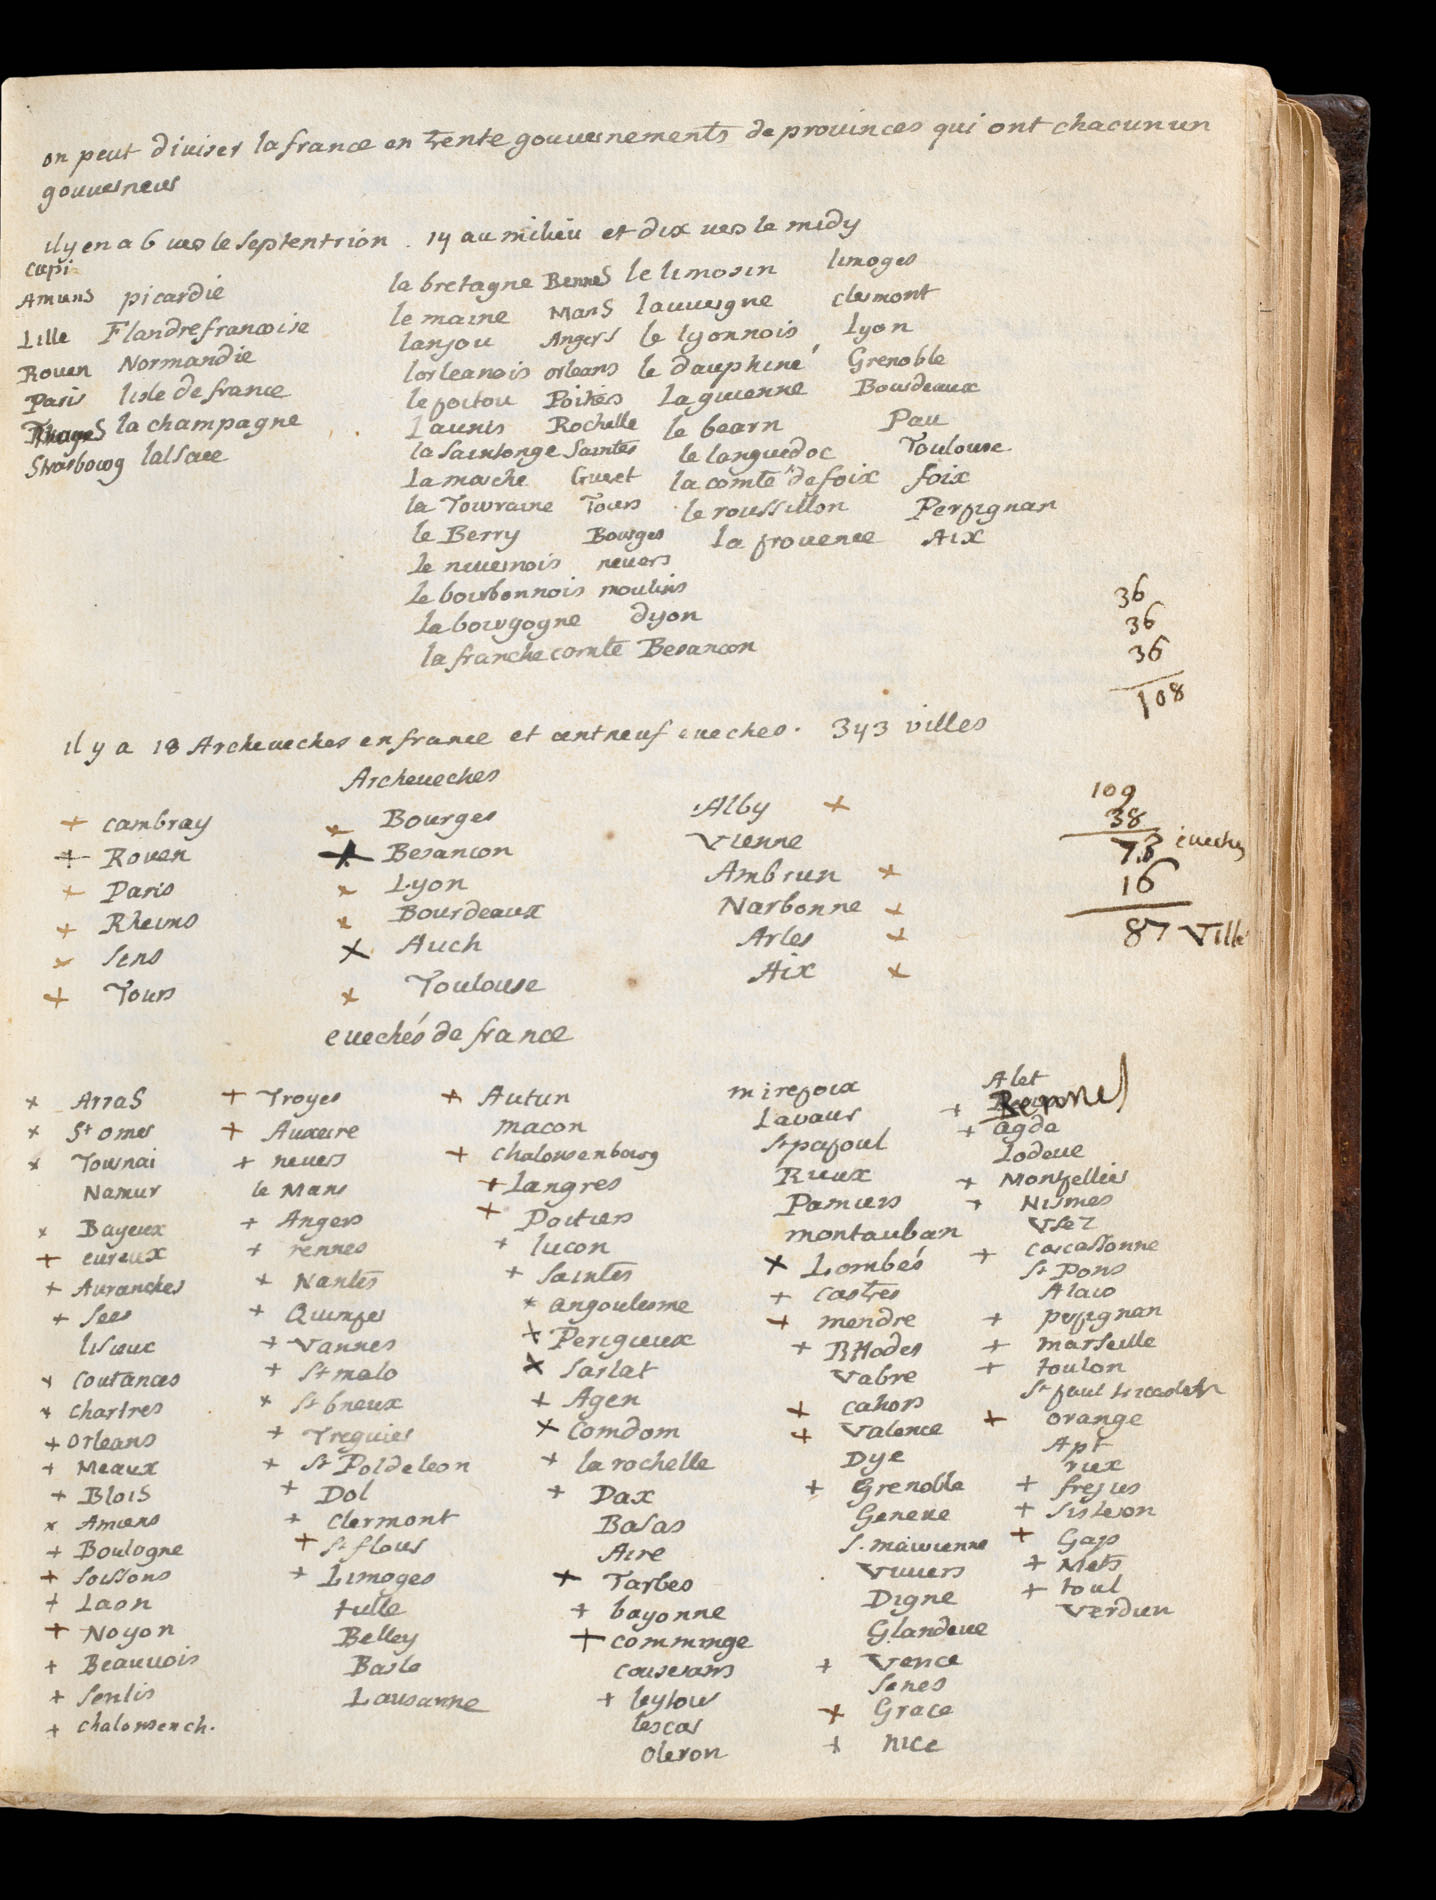 on peut diuiser la france en trente gouuernements de prouinces qui ont chacun un
gouuerneur
il y en a 6 uers le septentrion . 14 au milieu et dix uers le midy
capi
Amiens picardie
Lille Flandre francoise
Rouen Normandie
Paris lisle de france
la champagne
Strasbourg lalsace
la bretagne Rennes
le maine Mans
lanjou Angers
lorleanois orleans
le poitou Poitiers
Launis Rochelle
la saintonge Saintes
La marche Gueret
la Touraine Tours
le Berry Bourges
le neuernois neuers
le bourbonnois moulins
la bourgogne dyon
la franche comté Besancon
le limosin limoges
lauuergne clermont
le lyonnois Lyon
le dauphiné Grenoble
La guienne Bourdeaux
le bearn Pau
le languedoc Toulouse
la comté de foix foix
le roussillon Perpignan
la prouence Aix
36
36
36
108
il y a 18 Archeueches en france et cent neuf eueches . 343 villes
Archeueches
+ cambray
+ Rouen
+ Paris
+ Rheims
+ Sens
+ Tours
+ Bourges
+ Besancon
+ Lyon
+ Bourdeaux
+ Auch
+ Toulouse
Alby +
Vienne
Ambrun +
Narbonne +
Arles +
Aix +
109
38
73 eueches
16
87 Ville
euechés de france
+ Arras
+ St omer
+ Tournai
Namur
+ Bayeux
+ eureux
+ Auranches
+ Sees
lisieux
+ coutances
+ chartres
+ orleans
+ Meaux
+ Blois
+ Amiens
+ Boulogne
+ Soissons
+ Laon
+ Noyon
+ Beauuois
+ Senlis
+ chalons en ch.
+ Troyes
+ Auxerre
+ neuers
le Mans
+ Angers
+ rennes
+ Nantes
+ Quimper
+ Vannes
+ St malo
+ St brieux
+ Treguier
+ St Pol de leon
+ Dol
+ clermont
+ St flour
+ Limoges
tulle
Belley
Basle
Lausanne
+ Autun
macon
+ chalons en bourg
+ Langres
+ Poitiers
+ lucon
+ Saintes
+ angoulesme
+ Perigueux
+ Sarlat
+ Agen
+ Comdom
+ la rochelle
+ Dax
Basas
Aire
+ Tarbes
+ bayonne
+ comminge
couserans
+ leytour
lescar
oleron
mirepoix
Lavaur
St papoul
Rieux
Pamiers
montauban
+ Lombés
+ castres
+ mendre
+ RHodes
Vabre
+ cahors
+ Valence
Dye
+ Grenoble
Geneve
S. maurienne
Viuiers
Digne
Glandeue
+ Vence
Senes
+ Grace
+ nice
Alet
+
+ agde
Lodeue
+ Montpellier
+ Nismes
Usez
+ carcassonne
St Pons
Alais
+ perpignan
+ marseille
+ toulon
St paul
+ orange
Apt
riex
+ frejus
+ Sisteron
+ Gap
+ Mets
+ toul
Verdun